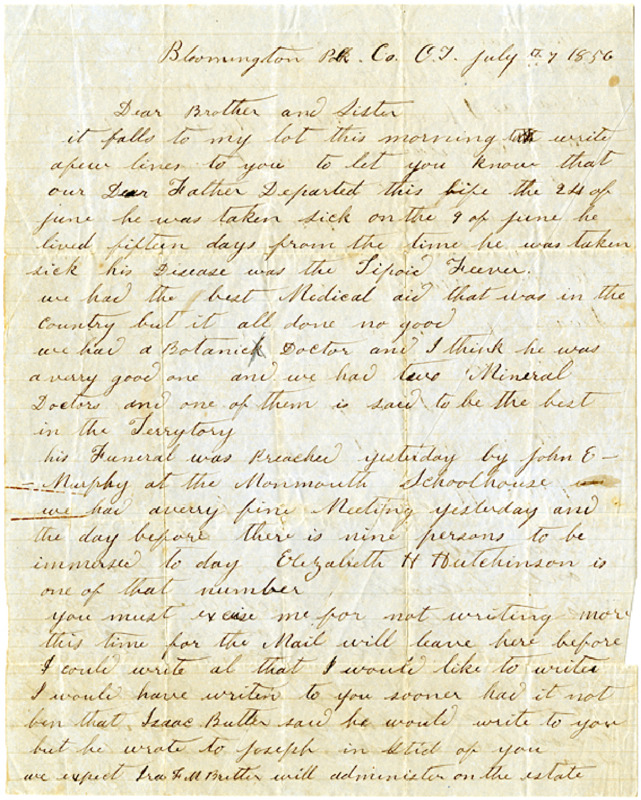 Bloomington Polk. Co. O.T. july 7 1856
Dear Brother and Sister
it falls to my lot this morning to write
afew lines to you to let you know that
our Dear Father Departed this life the 24 of
june he was taken sick on the 9 of june he
lived fifteen days from the time he was taken
sick his Disease was the Tipoid Feever.
we had the best Medical aid that was in the
Country but it all done no good
we had a Botanick Doctor and I think he was
a verry good one and we had two Mineral
Doctors and one of them is said to be the best
in the Terrytory
his Funeral was Preached yesterday by John E-
- Murphy at the Monmouth Schoolhouse
we had a verry fine Meeting yesterday and
the day before there is nine persons to be
immersed to day Elizabeth H Hutchinson is
one of that number
you must excuse me for not writing more
this time for the Mail will leave here before
I could write al that I would like to write
I would have writen to you sooner had it not
ben that Isaac Butler said he would write to you
but he wrote to Joseph in Stid of you
we expect Ira F M Butler will administer on the estate